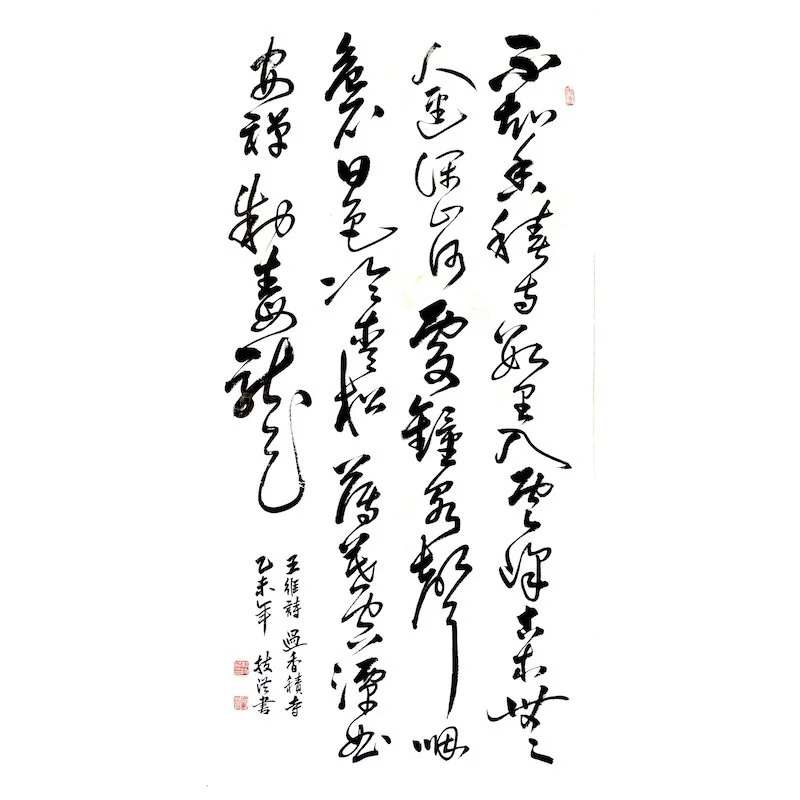 不知香積寺數里入雲峰古木無
人逕深山何處鐘泉聲咽
危石日色冷青松薄暮空潭曲
安禪制毒龍
王維詩過香積寺
乙未年 技洪書